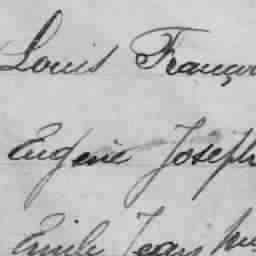 Louis Franço
Eugène Joseph
Emile Jean